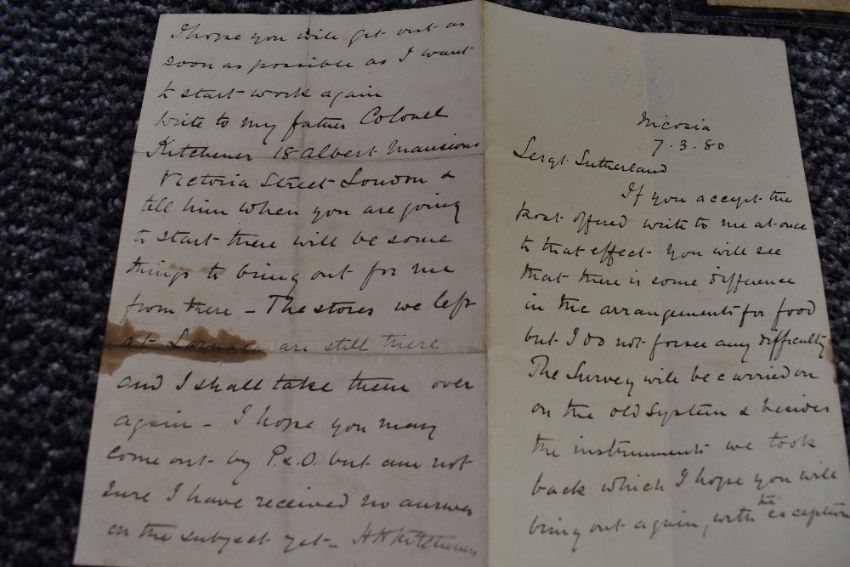 Nicosia
7.3.80
Sergt Sutherland
If you accept the
post offered write to me at once
to that effect you will see
that there is some difference
in the arrangements for food
but I do not forsee any difficulty
The Survey will be carried on
on the old System & besides
the instruments we took
back which I hope you will
bring out again, with the exception
I hope you will get out as
soon as possible as I want
to start work again
write to my father Colonel
Kitchener 18 Albert Mansions
Victoria Street London &
tell him when you are going
to start there will be some
things to bring out for me
from there - The stores we left
at are still there
and I shall take them over
again - I hope you may
come out by P & O. but am not
sure I have received no answer
on the subject yet - HH Kitchener